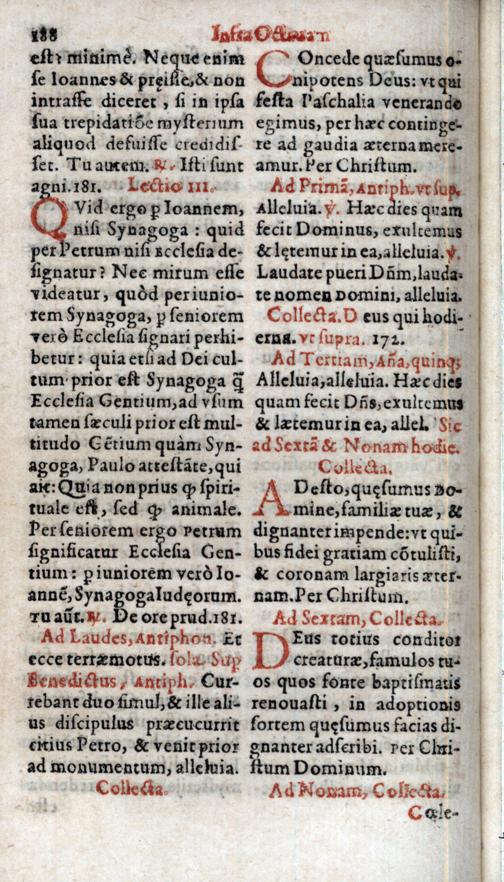 188 Infra Octauam
est? minimè. Neque enim
se Ioannes & pręisse, & non
intrasse diceret, si in ipsa
sua trepidatiõe mysterium
aliquod defuisse credidis-
set. Tu autem. ℟. Isti sunt
agni. 181. Lectio III.
QVid ergo ꝑ Ioannem,
nisi Synagoga: quid
per Petrum nisi Ecclesia de-
signatur? Nec mirum esse
videatur, quòd per iunio-
rem Synagoga, ꝑ seniorem
verò Ecclesia signari perhi-
betur: quia etsi ad Dei cul-
tum prior est Synagoga q̃
Ecclesia Gentium, ad vsum
tamen sæculi prior est mul-
titudo Gẽtium quàm Syn-
agoga, Paulo attestãte, qui
ait: Quia non prius ꝙ spiri-
tuale est, sed ꝙ animale.
Per seniorem ergo Petrum
significatur Ecclesia Gen-
tium: ꝑ iuniorem verò Io-
annẽ, Synagoga Iudęorum.
Tu aũt. ℟. De ore prud. 181.
Ad Laudes, Antiphon. Et
ecce terræmotus. sola. Sup
Benedictus, Antiph. Cur-
rebant duo simul, & ille ali-
us discipulus præcucurrit
citius Petro, & venit prior
ad monumentum, alleluia.
Collecta.
COncede quæsumus o-
nipotens Deus: vt qui
festa Paschalia venerando
egimus, per hæc continge-
re ad gaudia æterna mere-
amur. Per Christum.
Ad Primã, Antiph. vt sup.
Alleluia. ℣. Hæc dies quam
fecit Dominus, exultemus
& lętemur in ea, alleluia. ℣.
Laudate pueri Dñm, lauda-
te nomen Domini, alleluia.
Collecta. Deus qui hodi-
erna. vt supra. 172.
Ad Tertiam, Aña, quinqꝫ
Alleluia, alleluia. Hæc dies
quam fecit Dñs, exultemus
& lætemur in ea, allel. Sic
ad Sextã & Nonam hodie.
Collecta.
ADesto, quęsumus Do-
mine, familiæ tuæ, &
dignanter impende: vt qui-
bus fidei gratiam cõtulisti,
& coronam largiaris æter-
nam. Per Christum.
Ad Sextam, Collecta.
DEus totius conditor
creaturæ, famulos tu-
os quos fonte baptismatis
renouasti, in adoptionis
sortem quęsumus facias di-
gnanter adscribi. Per Chri-
stum Dominum.
Ad Nonam, Collecta.
Cœle-